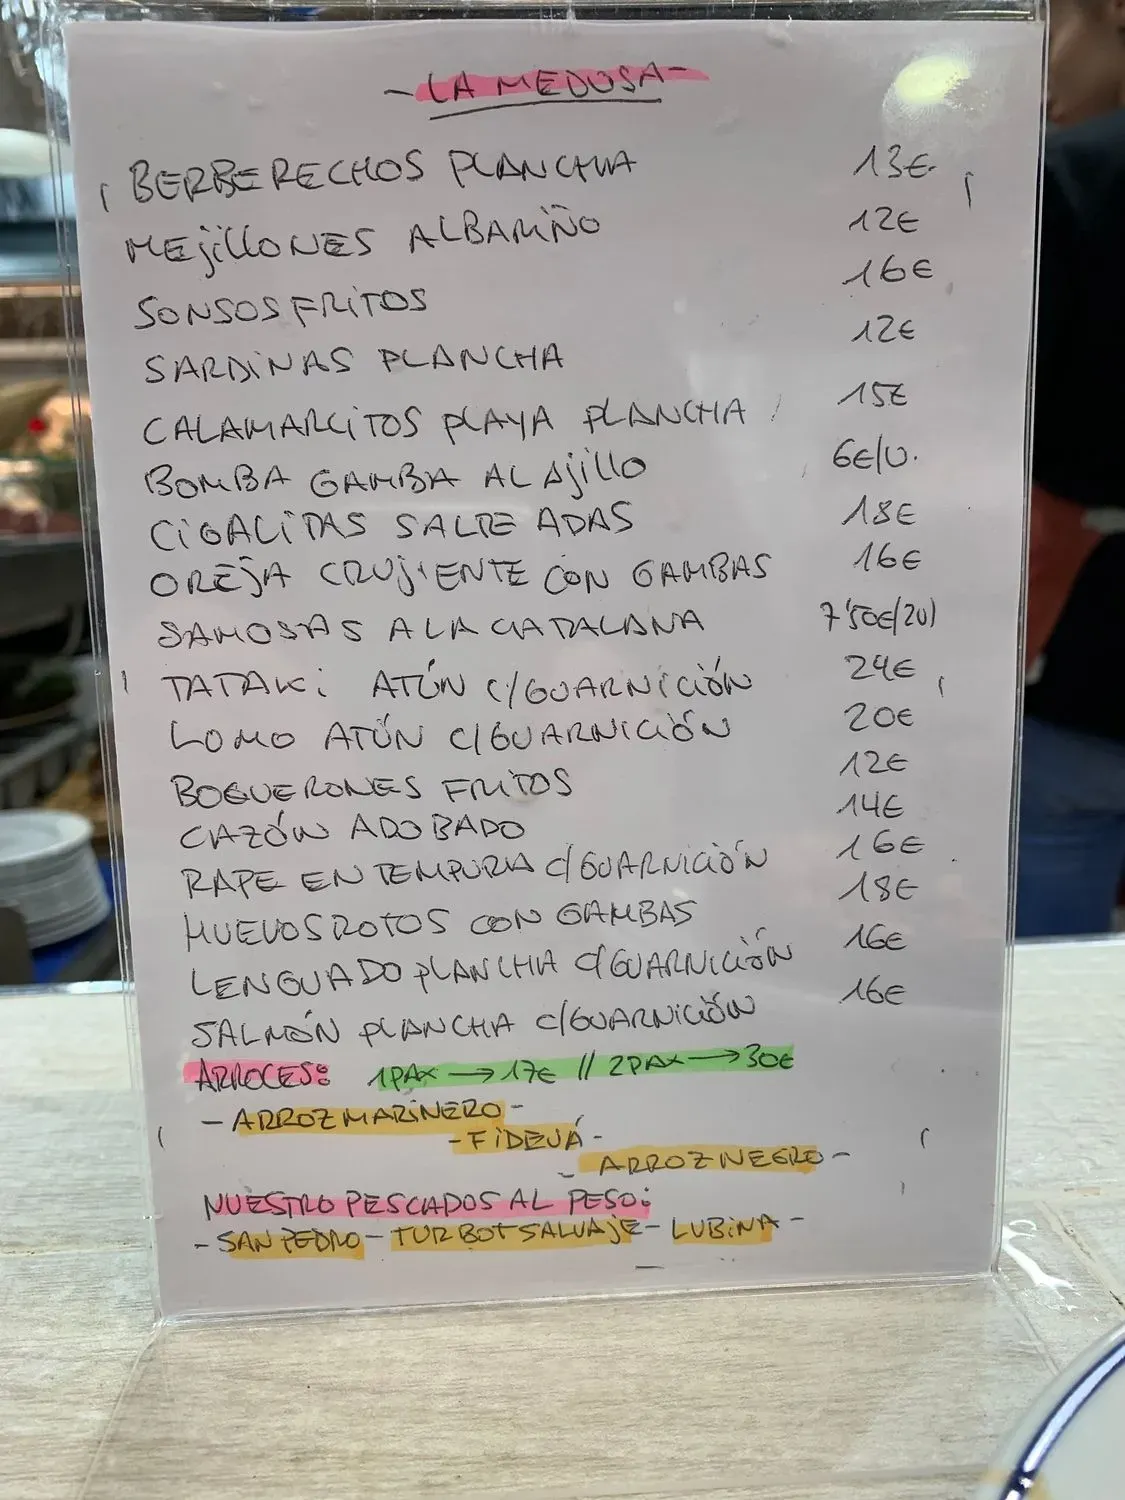 - LA MEDUSA -
BERBERECHOS PLANCHA 13€
MEJILLONES ALBARIÑO 12€
SONSOS FRITOS 16€
SARDINAS PLANCHA 12€
CALAMARCITOS PLAYA PLANCHA 15€
BOMBA GAMBA AL AJILLO 6€/U.
CIGALITAS SALTEADAS 18€
OREJA CRUJIENTE CON GAMBAS 16€
SAMOSAS A LA CATALANA 7'50€/2U
TATAKI ATÚN C/GUARNICIÓN 24€
LOMO ATÚN C/GUARNICIÓN 20€
BOQUERONES FRITOS 12€
CAZÓN ADOBADO 14€
RAPE EN TEMPURA C/GUARNICIÓN 16€
HUEVOS ROTOS CON GAMBAS 18€
LENGUADO PLANCHA C/GUARNICIÓN 16€
SALMÓN PLANCHA C/GUARNICIÓN 16€
ARROCES: 1PAX → 17€ // 2PAX → 30€
- ARROZ MARINERO -
- FIDEUÁ -
- ARROZ NEGRO -
NUESTRO PESCADOS AL PESO:
- SAN PEDRO - TURBOT SALVAJE - LUBINA -